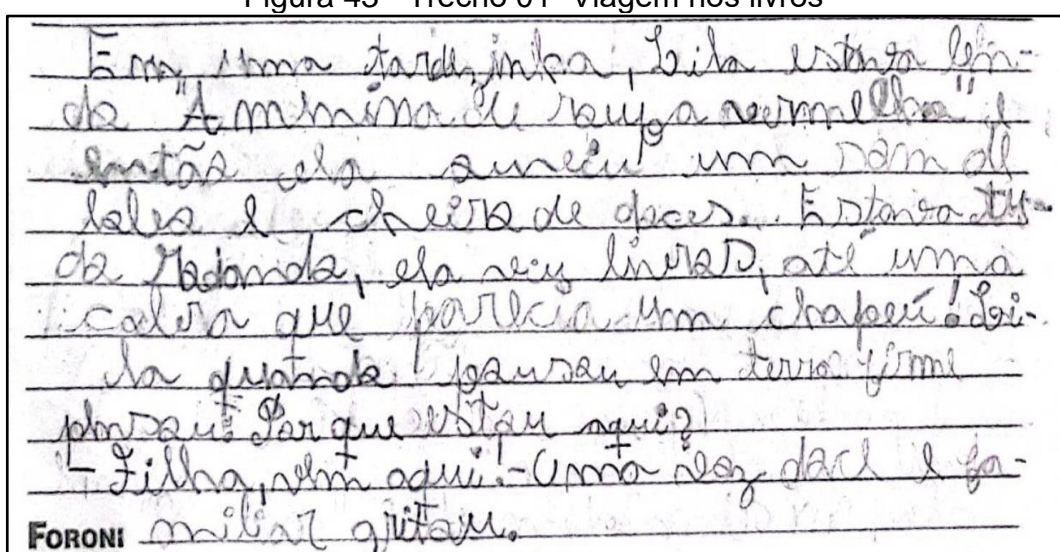 Figura 43 – Trecho 01 "Viagem nos livros"
Em uma tardezinha, Lila estava len-
do "A menina de roupa vermelha" e
então ela ouviu um som de
e cheiro de doces... Estava tu-
do rodando, ela viu livros, até uma
que parecia um chapeú! Li-
la quando pousou em terra firme
pensou: Por que estou aqui?
- Filha, vem aqui! - Uma voz doce e fa-
FORONI miliar gritou.